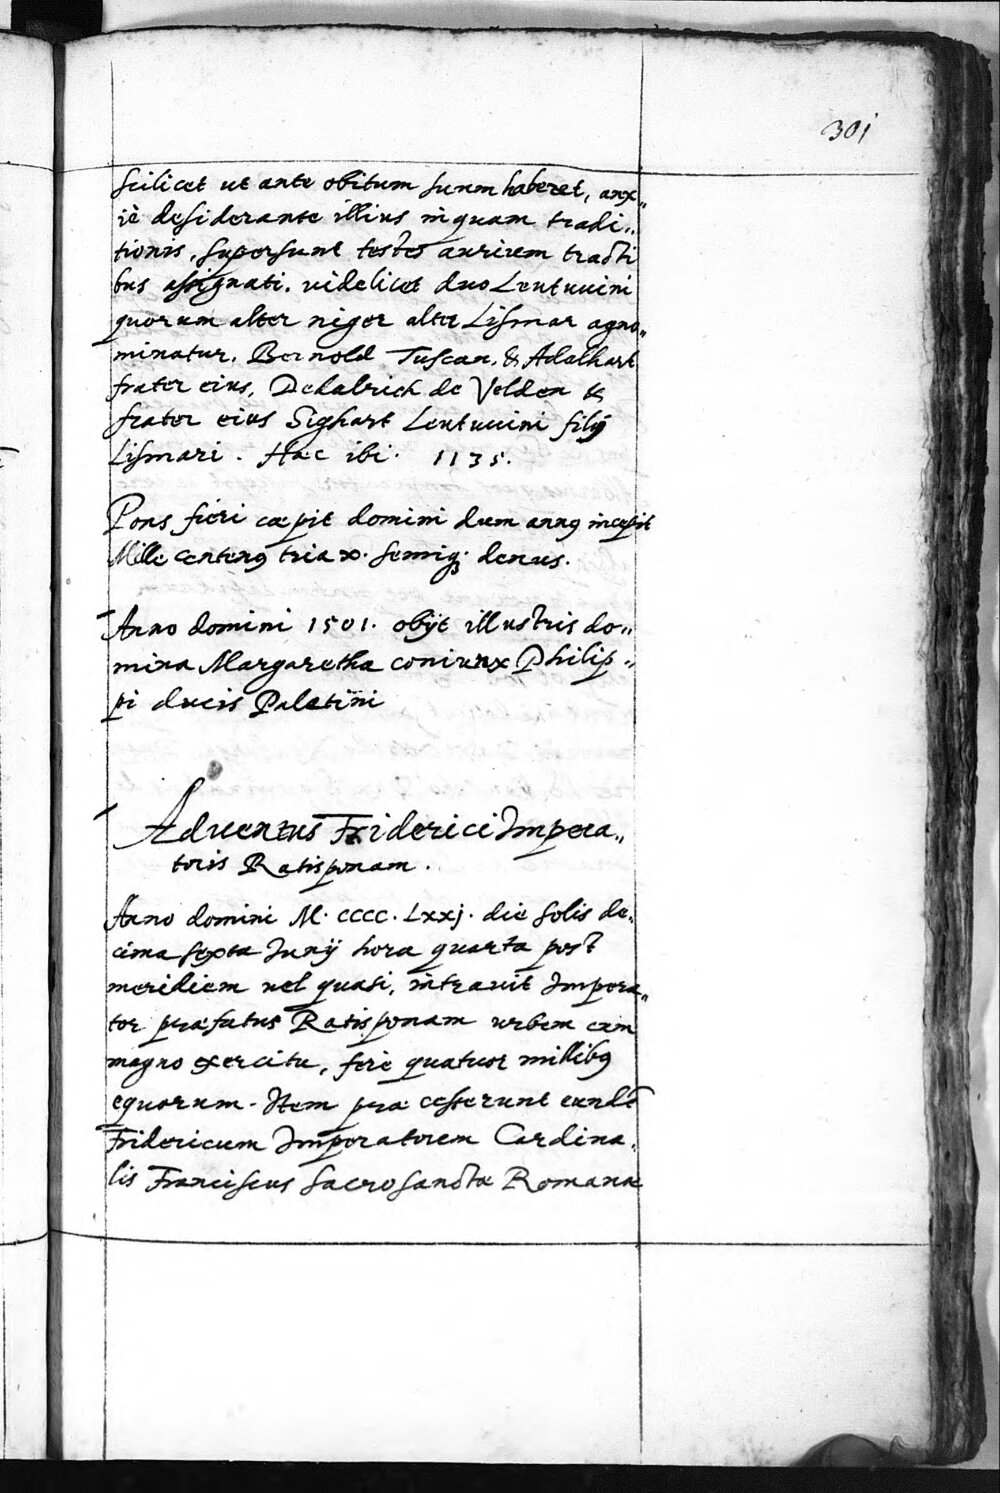 301
scilicet ut ante obitum suum haberet, anx„
iè desiderante illius inquam tradi„
tionis, supersunt testes aurium tracti
bus assignati. videlicet duo Leutuuini
quorum alter niger alter Lismar agno„
minatur. Bernold Tuscan. & Adalhart
frater eius, Dedalrich de Velden &
frater eius Sighart Leutuuini filij
Lismari. Hæc ibi. 1135.
Pons fieri cœpit domini dum annꝰ incepit
Mille centenꝰ tria x. semiqꝫ denus.
Anno domini 1501. obijt illustris do„
mina Margaretha coniunx Philip„
pi ducis Palatini
Aduentus Friderici Impera„
toris Ratisponam.
Anno domini M. cccc. Lxxj. die solis de„
cima sexta Junij hora quarta post
meridiem uel quasi, intrauit Impera„
tor præfatus Ratisponam urbem cum
magno exercitu, ferè quatuor millibꝰ
equorum. Item præcesserunt eundẽ
Fridericum Imperatorem Cardina„
lis Franciscus sacrosanctæ Romanæ